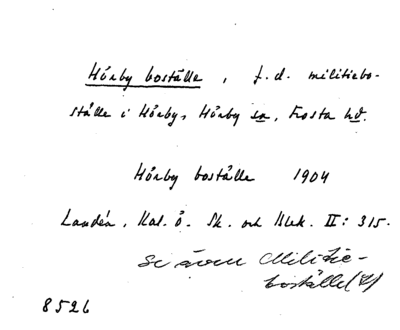 Hörby boställe, f.d. militiebo-
ställe i Hörby, Hörby sn, Frosta hd.
Hörby boställe 1904
Landén, Kal. ö. Sk. och Blek. II: 315.
Se även Militie-
boställe(t)
8526